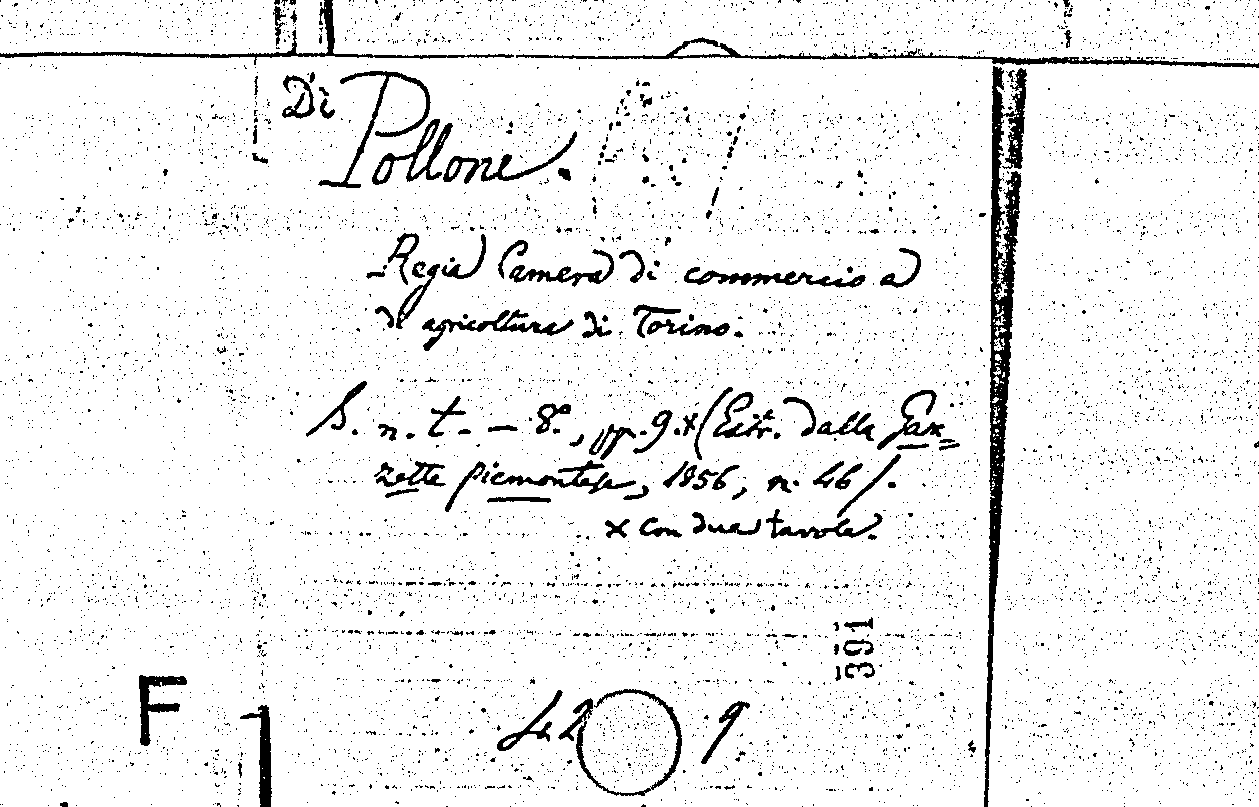 Di Pollone.
Regia Camera di commercio e
di agricoltura di Torino.
S. n. t. - 8°., pp. 9. x (Estr. dalla Gaz=
zetta piemontese, 1856, n. 46).
x con due tavole.
391
F
42 9